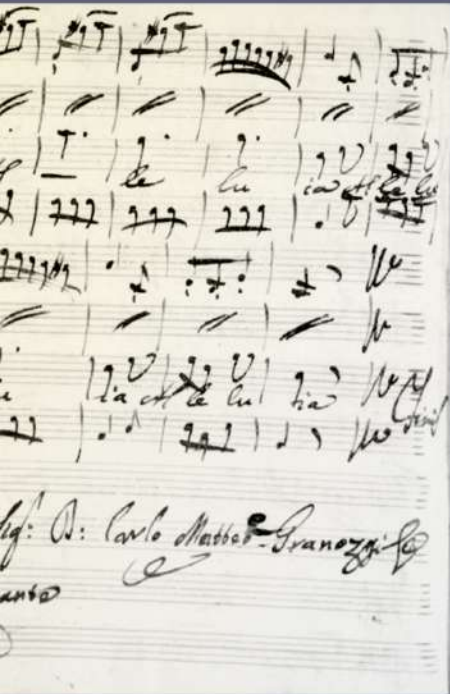 le lu ia al le lu
ia al le lu ia
Sig: D: Carlo Matteo Granozzi